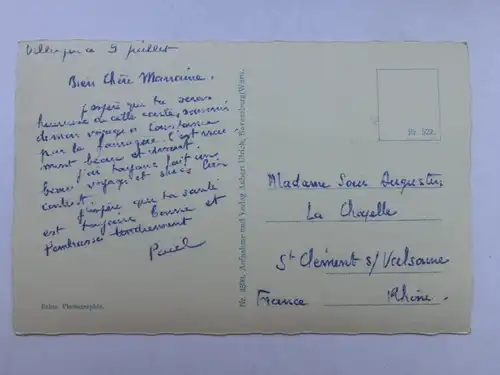 9 juillet
Bien Chère Marraine,
J'espère que tu seras
heureuse de cette carte, souvenir
de mon voyage à Constance
par la C'est vrai-
ment beau et
J'ai toujours fait un
beau voyage et suis très
content.
J'espère que ta santé
est toujours bonne et
t'embrasse tendrement
Paul
Echte Photographie.
Nr. Aufnahme und Verlag Ulrich, Ravensburg/Württ.
Madame Augustin
La Chapelle
St Clément s/ Valsonne
Rhône.
France